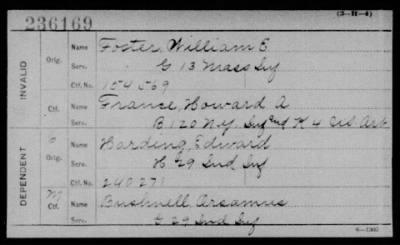 (3-II-4)
236169
INVALID
Orig. Name Foster, William E
Serv. G 13 Mass Inf
Ctf. No. 154569
Ctf. Name France, Howard A
Serv. B. 120 N.Y. Inf and K 4 U.S. Art
DEPENDENT
Orig. Name Harding, Edward
Serv. H 29 Ind Inf
Ctf. No. 240271
Name Bushnell, Orsamus
Serv. 29 Ind Inf
6-1302